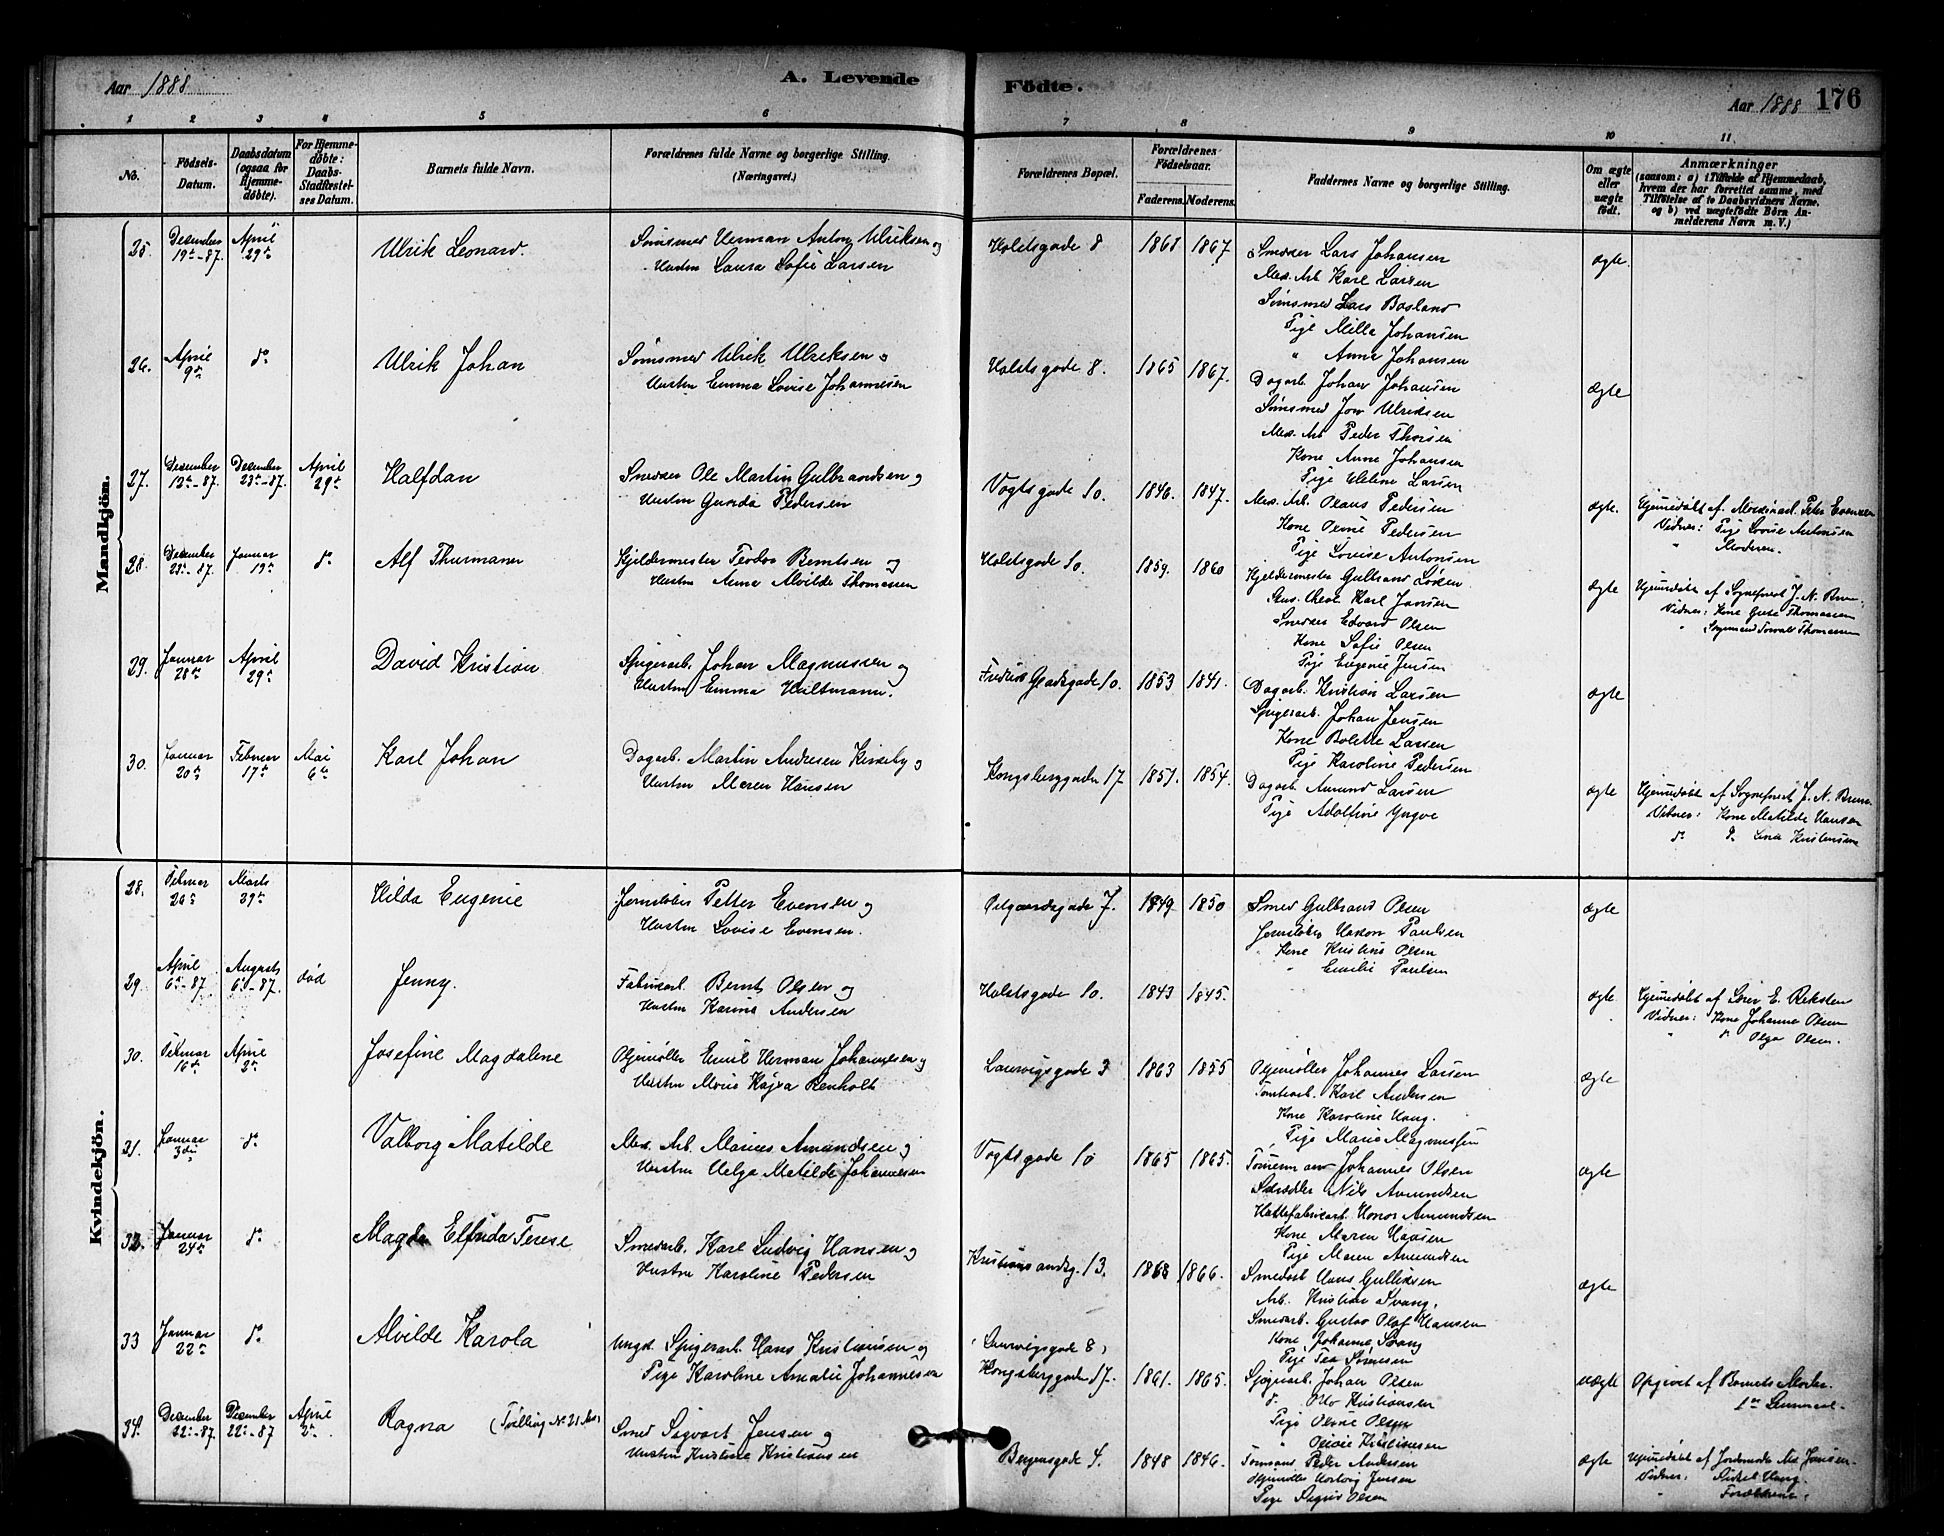 Aar 1888
A. Levende
Födte.
Aar 1888 176
1 2 3 4 5 6 7 8 9 10 11
No.
Födsels-
Datum.
Daabsdatum
(ogsaa for
Hjemme-
döbte).
For Hjemme-
döbte:
Daabs-
Stadfæstel-
ses Datum.
Barnets fulde Navn.
Forældrenes fulde Navne og borgerlige Stilling.
(Næringsvei.)
Forældrenes Bopæl.
Forældrenes
Födselsaar.
Faderens. Moderens.
Faddernes Navne og borgerlige Stilling.
Om ægte
eller
uægte
födt.
Anmærkninger
(saasom: a) i Tilfælde af Hjemmedaab,
hvem der har forrettet samme, med
Tilföielse af to Daabsvidners Navne.
og b) ved uægtefödte Börn An-
melderens Navn m. V.)
Mandkjön.
25. Desember 19de-87. April 29de Ulrik Leonard. Sömsmed Herman Anton Ulriksen og
Hustru Laura Sofie Larsen
Holstsgade 8 1868 1867.
Smedsv Lars Johansen
Mek. Arb. Karl Larsen
Sömsmed Lars Basland
Pige Milla Johansen
" Anna Johansen
ægte.
26. April 9de do Ulrik Johan Sömsmed Ulrik Ulriksen og
Hustru Emma Lovise Johannesen
Holstsgade 8. 1865 1867.
Dagarb. Johan Johansen
Sömsmed Jon Ulriksen
Mek. Arb. Peder Thorsen
Kone Anne Johansen
Pige Heline Larsen
ægte
27. Desember 12de-87. Desember 23de-87. April 29de Halfdan Smedsv Ole Martin Gulbrandsen og
Hustru Gunda Pedersen
Vogtsgade 10. 1846. 1847.
Mek. Arb. Olaus Pedersen
Kone Oline Pedersen
Pige Lovise Antonsen
ægte. Hjemmedöbt af Peter Evensen
Vidner: Pige Lovise Antonsen
" Moderen.
28. Desember 23de-87. Januar 19de do Alf Thurmann Kjeldermester Teodor Berntsen og
Hustru Anna Alvilde Thomassen
Holstsgade 10. 1859. 1860
Kjeldermester Gulbrand
Karl Jansen
Smedsv Edvard Olsen
Kone Sofie Olsen
Pige Eugenie Jensen
ægte Hjemmedöbt af Sognepræst J. N. Brun.
Vidner: Kone Grete Thomassen
" Torvald Thomassen
29. Januar 28de April 29de David Kristian Spigerarb. Johan Magnussen og
Hustru Emma Hultmann.
10. 1853 1841.
Dagarb. Kristian Larsen
Spigerarb. Johan Jensen
Kone Bolette Larsen
Pige Karoline Pedersen
ægte
30. Januar 20de Februar 17de Mai 6te Karl Johan Dagarb. Martin Andresen Kirkeby og
Hustru Maren Hansen
Kongsberggaden 17 1851. 1854.
Dagarb. Amund Larsen
Pige Adolfine Yngve
ægte Hjemmedöbt af Sognepræst J. N. Brun.
Vidner: Kone Matilde Hansen
do do Lina Kristensen
Kvindekjön.
28. Februar Marts Hilda Eugenie Jernstöber Petter Evensen og
Hustru Lovise Evensen.
7. 1849 1850
Smed Gulbrand Olsen
Jernstöber Haakon Paulsen
Kone Kristine Olsen
" Emilie Paulsen
ægte
29. April 6te-87 August 6te-87. död Jenny. Fabrikarb. Bernt Olsen og
Hustru Karine Andersen
Holstsgade 10. 1843 1845.
ægte Hjemmedöbt af E. Reksten
Vidner: Kone Johanne Olsen
" do Olga Olsen.
30. Februar 16de April 2de Josefine Magdalene Oljemöller Emil Herman Johannesen og
Hustru Marie Kajsa Renholt
Laurvigsgade 3 1863 1855
Oljemöller Johannes Larsen
Tomtearb. Karl Andersen
Kone Karoline Haug.
Pige Marie Magnussen
ægte
31. Januar 3die do Valborg Matilde Mek. Arb. Marius Amundsen og
Hustru Helga Matilde Johannesen
Vogtsgade 10 1865 1865.
Johannes Olsen
Skrædder Nils Amundsen
Hattefabrikarb. Amundsen
Kone Maren Hansen
Pige Maren Amundsen
ægte
32. Januar 24de do Magda Elfrida Terese Smedarb. Karl Ludvig Hansen og
Hustru Karoline Pedersen
Kristiansandsg. 13. 1868 1866.
Smedarb Hans Gulliksen
Arb. Kristian Svang.
Smedarb. Gustav Olaf Hansen
Kone Johanne Svang
Pige Tea Sörensen
ægte
33 Januar 22de do Alvilde Karola Ungk. Spigerarb. Hans Kristiansen og
Pige Karoline Amalie Johannesen
Laurvigsgade 8,
Kongsberggade 17. 1861. 1865.
Johan Olsen
do Otto Kristiansen
Pige Oline Olsen
" Kristiansen
uægte Opgivet af Barnets Moder.
34. Desember 22de-87. Desember 22de-87 April 2de Ragna (Tvilling No 21) Smed Sigvart Jensen og
Hustru Kristine Kristiansen
Bergensgade 4. 1848 1846.
Peder Andersen
Jensen
Pige Sigrid Olsen
ægte Hjemmedöbt af Jordemoder Jansen.
Vidner: Haug.
" Forældrene.